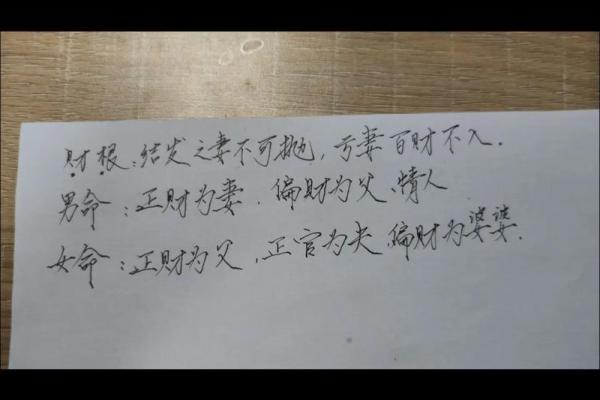 财根：结发之妻不可抛，亏妻百财不入．
男命：正财为妻．偏财为父、情人
女命：正财为父，正官为夫，偏财为婆婆．